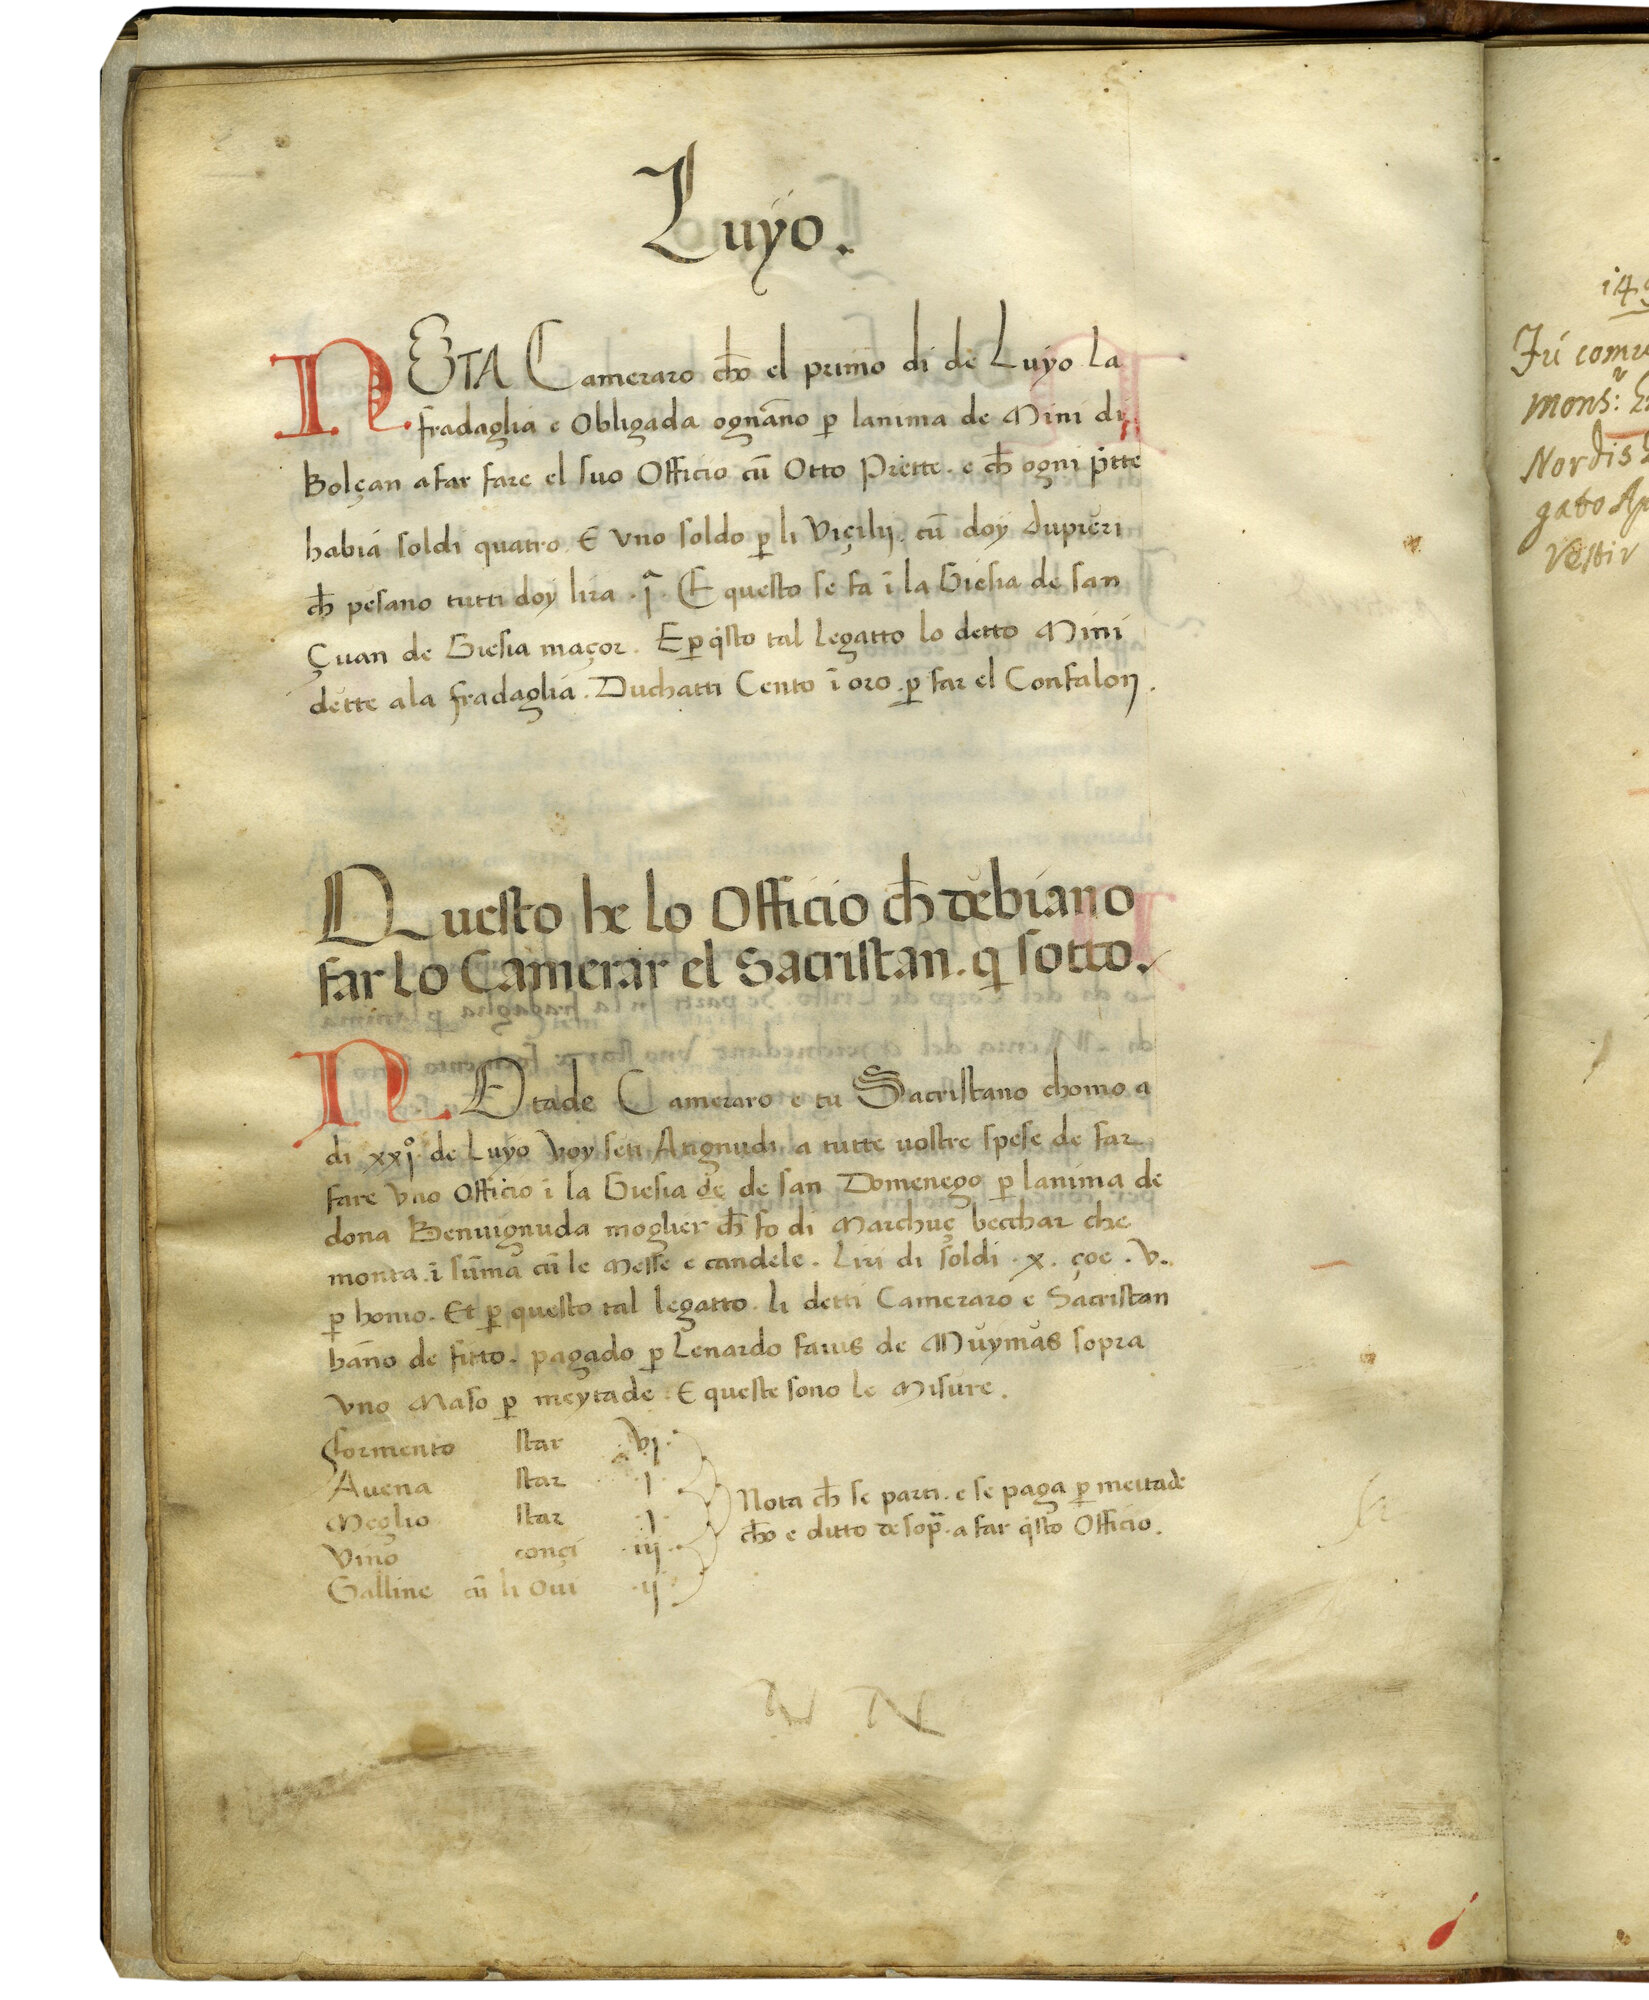 Luyo.
NOTA Cameraro cħo el primo di de Luyo la
fradaglia e Obligada ognāno ꝑ lanima de Mini di
Bolçan a far fare el suo Officio cū Otto Prette. e cħ ogni p̄tte
habia soldi quatro. E vno soldo ꝑ li Viçilij. cū doy dupieri
cħ pesano tutti doy lira .jª. E questo se fa ī la Giesia de san
Çuan de Giesia maçor. E ꝑ q̄sto tal legatto lo detto Mini
dette a la fradaglia. Duchatti Cento ī oro. ꝑ far el Confalon.
Questo he lo Officio cħ debiano
far lo Camerar el Sacristan. q̄ sotto.
NOtade Cameraro e tu Sacristano chomo a
di xxjº de Luyo Voy seti Atignudi a tutte uostre spese de far
fare vno Officio ī la Giesia de de san Domenego ꝑ lanima de
dona Benuignuda moglier cħ fo di Marchuç becchar che
monta ī sūma cū le Messe e candele. Liri di soldi .x. çoe .V.
ꝑ homo. Et ꝑ questo tal legatto. li detti Cameraro e Sacristan
hāno de fitto. pagado ꝑ Lenardo fauis de Muymas sopra
vno Maso ꝑ meytade. E queste sono le Misure.
formento star .Vj.
Auena star .j.
Meglio star .j.
Vino conçi .iij.
Galline cū li Oui .ij.
Nota cħ se parti. e se paga ꝑ meitade
cħo e ditto de sop̄. a far q̄sto Officio.
N N
Fu
mons:
Nordis
gato
Vestir